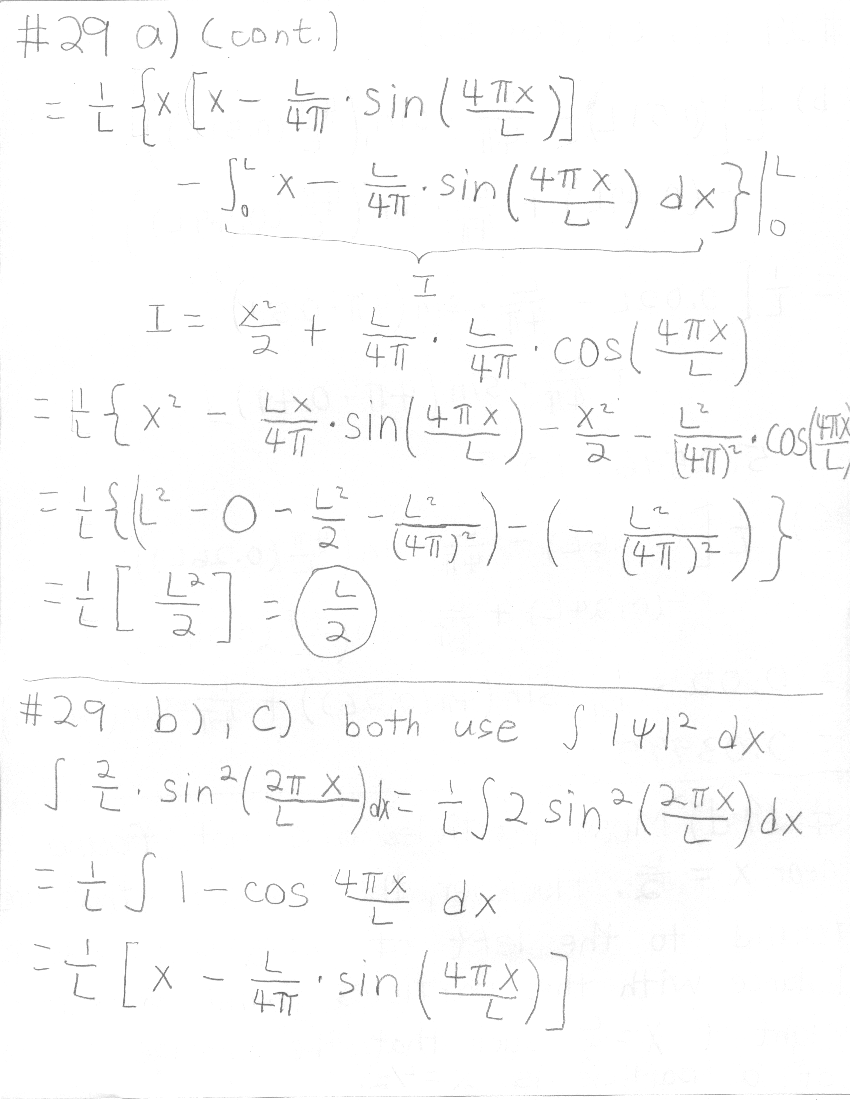 #29 a) (cont.)
= 1/L { x [ x − L/4π · sin(4πx/L) ]
− ∫₀ᴸ x − L/4π · sin(4πx/L) dx } |₀ᴸ
I
I = x²/2 + L/4π · L/4π · cos(4πx/L)
= 1/L { x² − Lx/4π · sin(4πx/L) − x²/2 − L²/(4π)² · cos(4πx/L)
= 1/L { (L² − 0 − L²/2 − L²/(4π)²) − (− L²/(4π)²) }
= 1/L [ L²/2 ] = L/2
#29 b), c) both use ∫ |ψ|² dx
∫ 2/L · sin²(2πx/L) dx = 1/L ∫ 2 sin²(2πx/L) dx
= 1/L ∫ 1 − cos 4πx/L dx
= 1/L [ x − L/4π · sin(4πx/L) ]